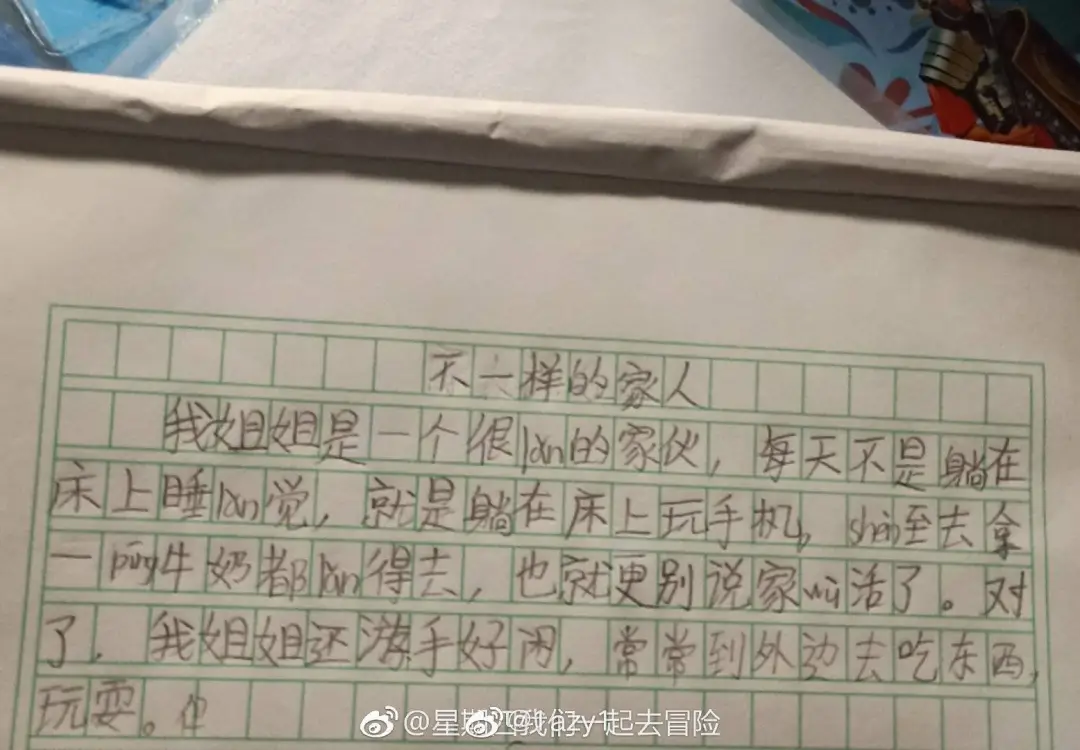 不一样的家人
我姐姐是一个很lǎn的家伙，每天不是躺在
床上睡lǎn觉，就是躺在床上玩手机，shèn至去拿
一píng牛奶都lǎn得去，也就更别说家wù活了。对
了，我姐姐还游手好闲，常常到外边去吃东西，
玩耍。